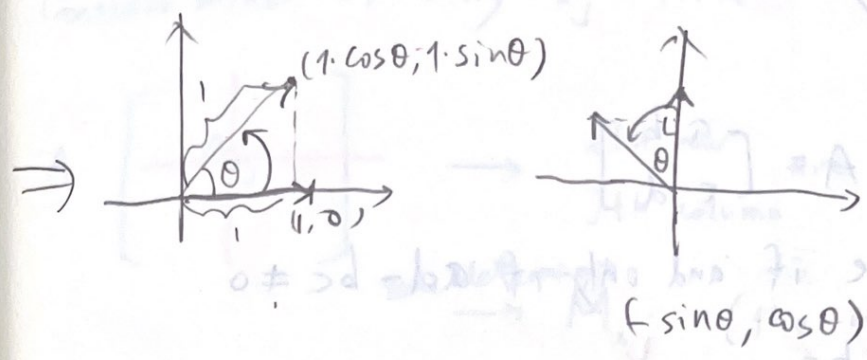 (1·cosθ, 1·sinθ)
1
θ
1
(1, 0)
1
θ
(-sinθ, cosθ)